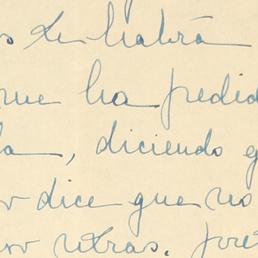 habrá
que ha pedid
la, diciendo q
dice que no
otras. José